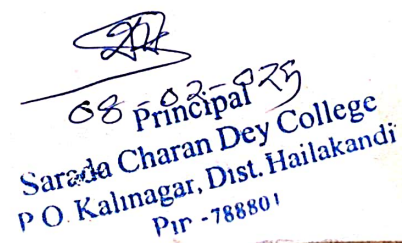 08-02-025
Principal
Sarada Charan Dey College
P O. Kalinagar, Dist. Hailakandi
Pin -788801